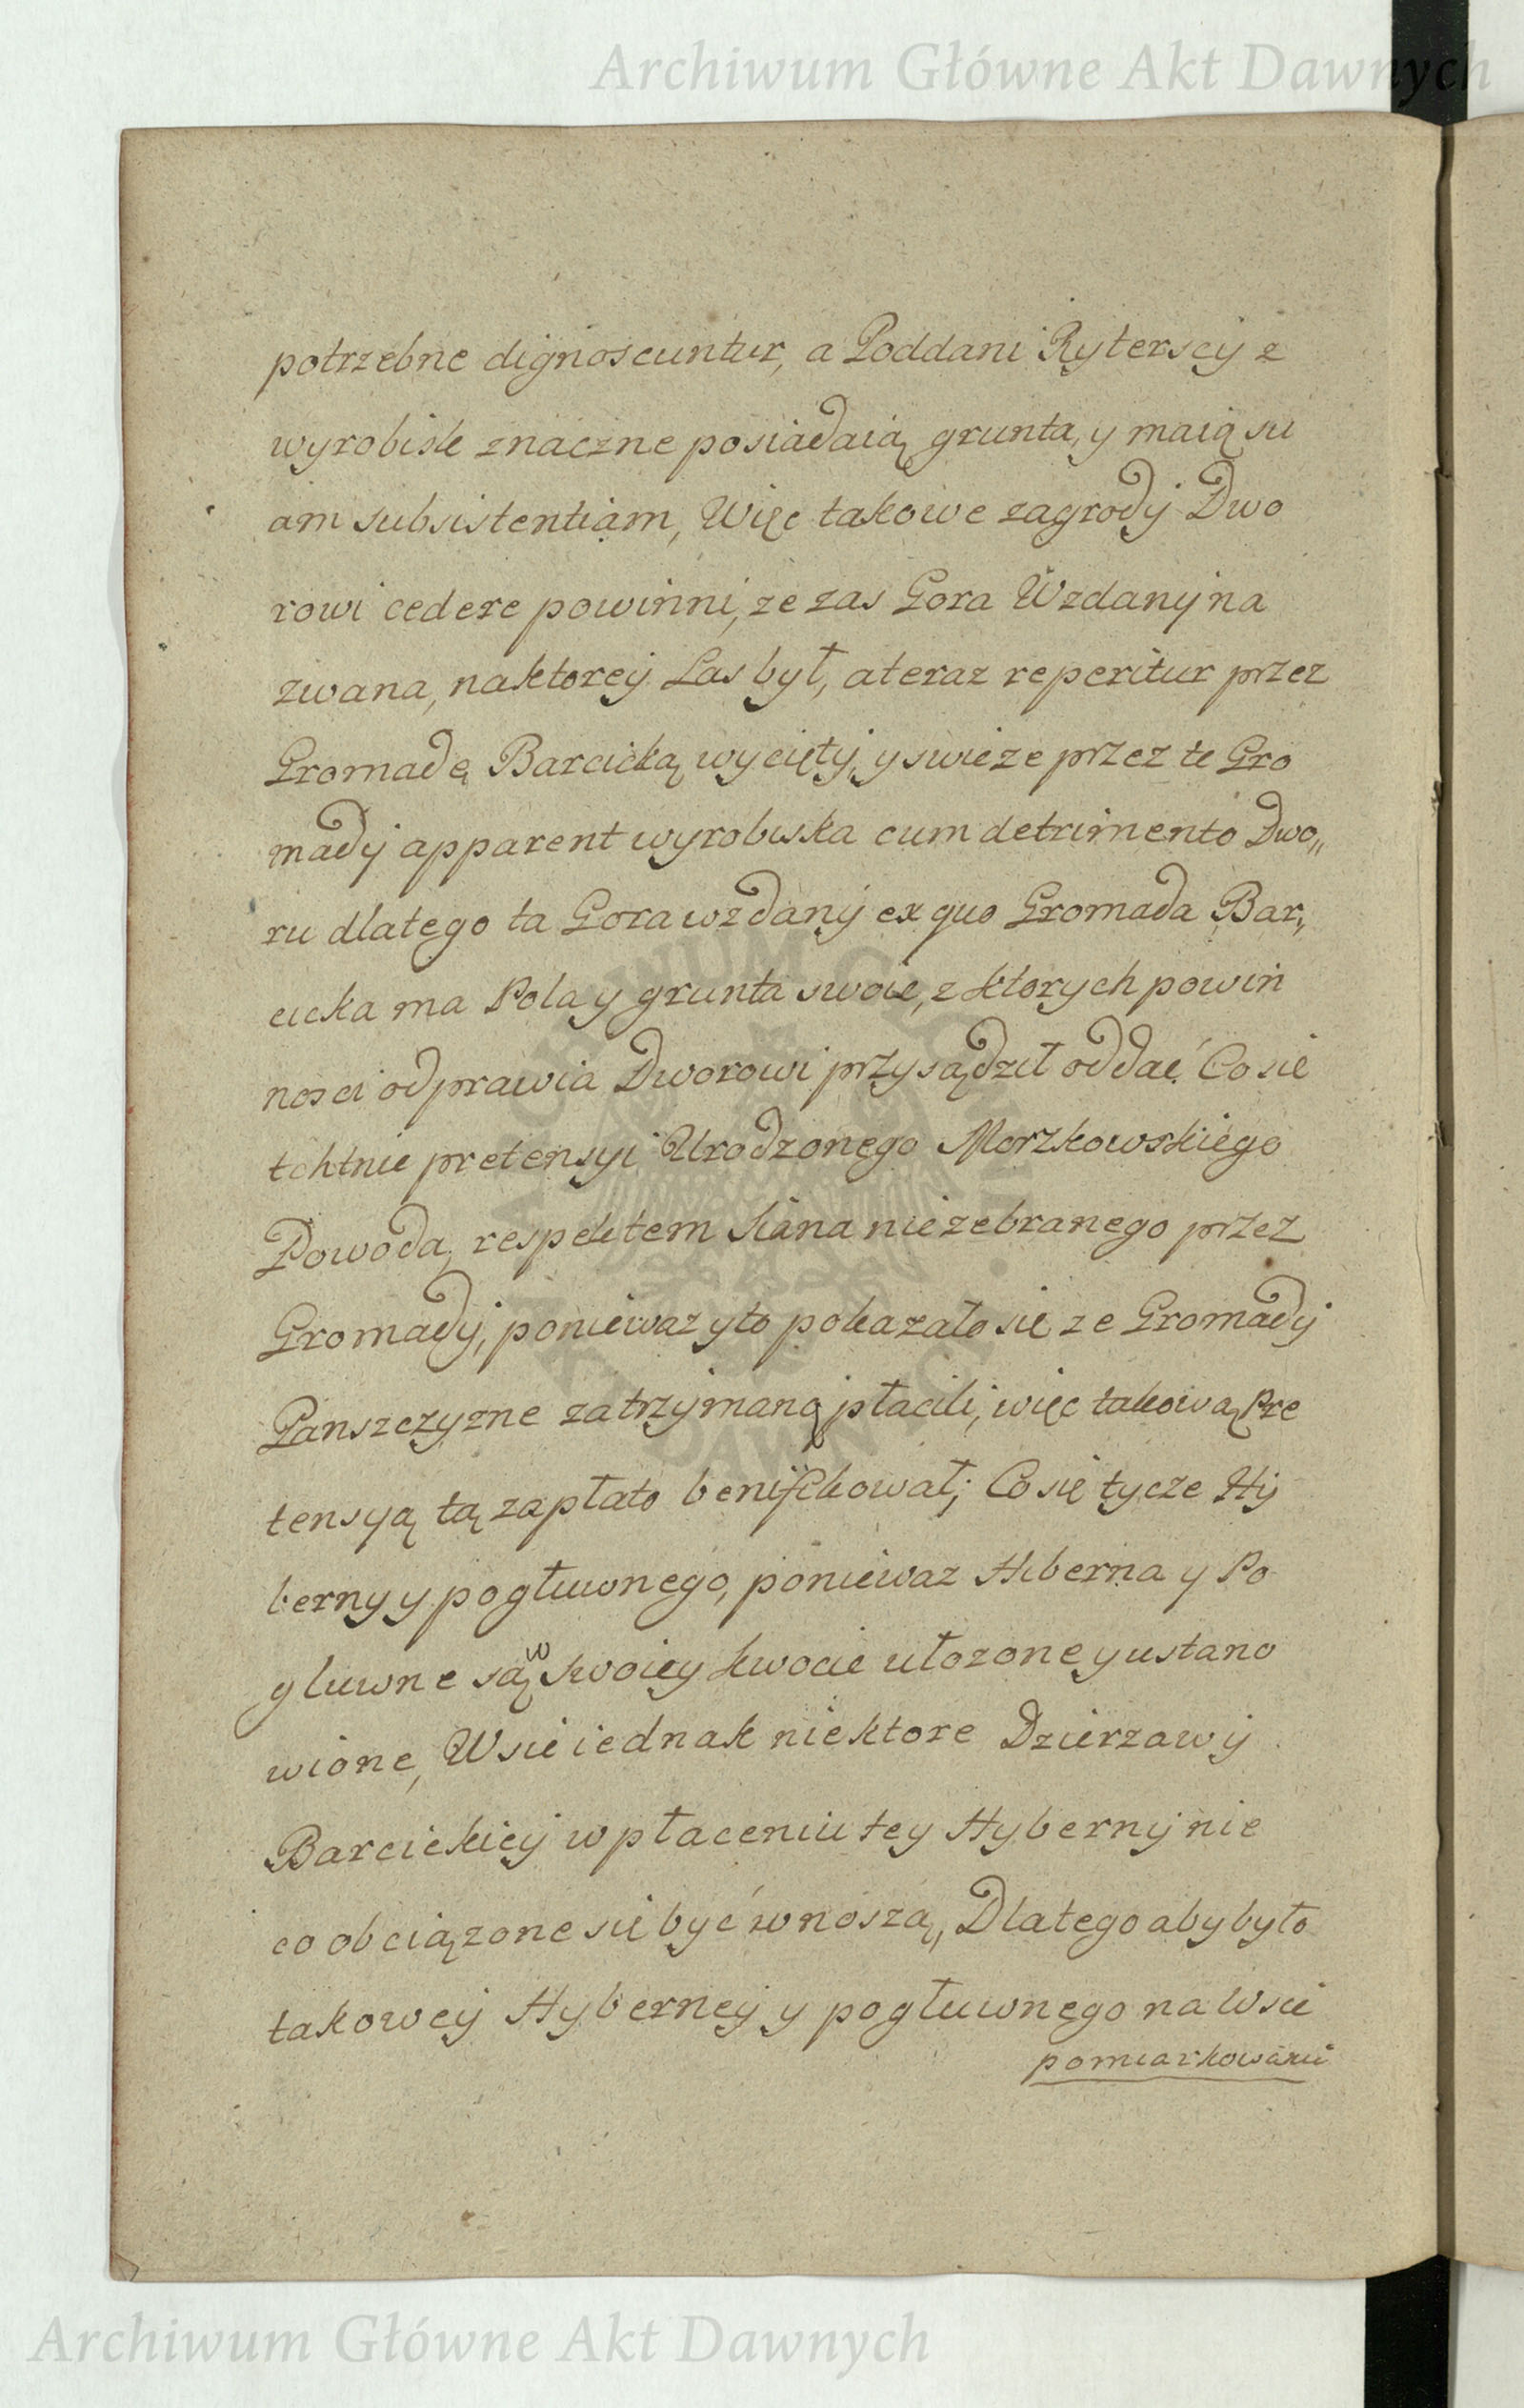 Archiwum Główne Akt Dawnych
potrzebne dignoscuntur, a Poddani Ryterscy z
wyrobisk znaczne posiadaią grunta, y maią su
am subsistentiam, Więc takowe zagrody Dwo
rowi cedere powinni, ze zas Gora Wzdany na
zwana, naktorey Las był, ateraz reperitur przez
Gromadę Barcicką wycięty, y swieze przez te Gro
mady apparent wyrobiska cum detrimento Dwo„
ru dlatego ta Gora wzdany ex quo Gromada Bar„
cicka ma Pola y grunta swoie, z ktorych powin
nosci odprawia Dworowi przysądził oddać Co sie
tchnie pretensyi Urodzonego Morzkowskiego
Powoda, respektem Siana niezebranego przez
Gromady, poniewaz yto pokazało się ze Gromady
Panszczyzne zatrzymaną płacili, więc takową Pre
tensyą tą zapłato benifikował; Co się tycze Hy
berny y pogłuwnego, poniewaz Hiberna y Po
gluwne są w swoiey kwocie ułozone y ustano
wione, Wsie iednak niektore Dzierzawy
Barcickiey w płaceniu tey Hyberny nie
co obciązone sie być wnoszą, Dlatego aby było
takowey Hyberney y pogłuwnego na Wsie
pomiarkowanie
Archiwum Główne Akt Dawnych